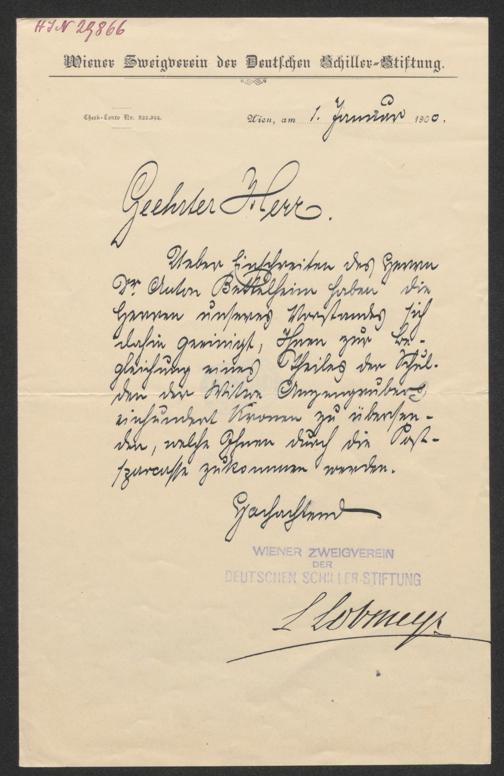 HIN 29866
Wiener Zweigverein der Deutschen Schiller-Stiftung.
Check-Conto Nr.
Wien, am 1. Januar 1900.
Geehrter Herr.
Ueber Einschreiten des Herrn
Dr. Anton Bettelheim haben die
Herren unseres Vorstandes sich
dahin geeinigt, Ihnen zur Be-
gleichung eines Theiles der Schul-
den der Witwe Anzengrubers
einhundert Kronen zu übersen-
den, welche Ihnen durch die Post-
sparcasse zukommen werden.
Hochachtend
WIENER ZWEIGVEREIN
DER
DEUTSCHEN SCHILLER-STIFTUNG
L Lobmeyr